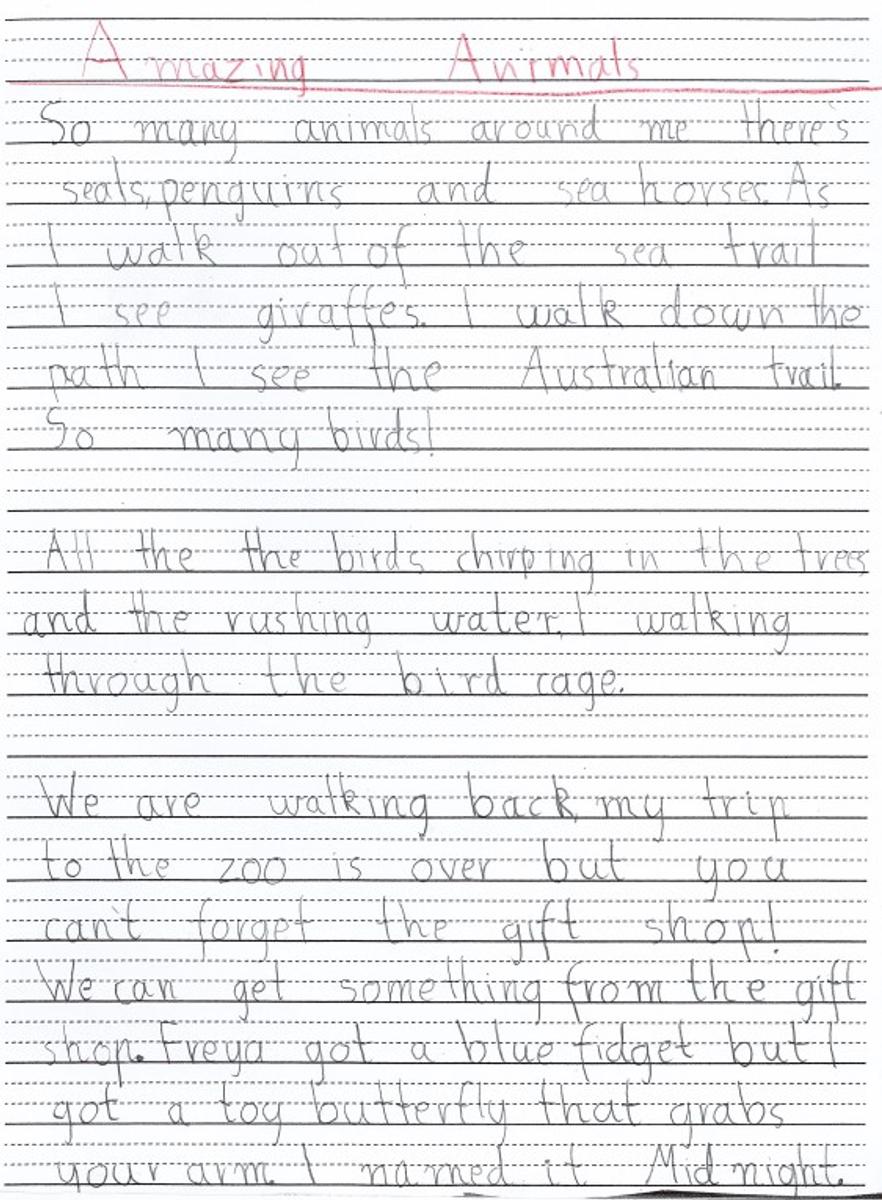 Amazing Animals
So many animals around me there's
seals, penguins and sea horses. As
I walk out of the sea trail
I see giraffes. I walk down the
path I see the Australian trail.
So many birds!
All the the birds chirping in the trees
and the rushing water, I walking
through the bird cage.
We are walking back, my trip
to the zoo is over but you
can't forget the gift shop!
We can get something from the gift
shop. Freya got a blue fidget but I
got a toy butterfly that grabs
your arm. I named it Midnight.